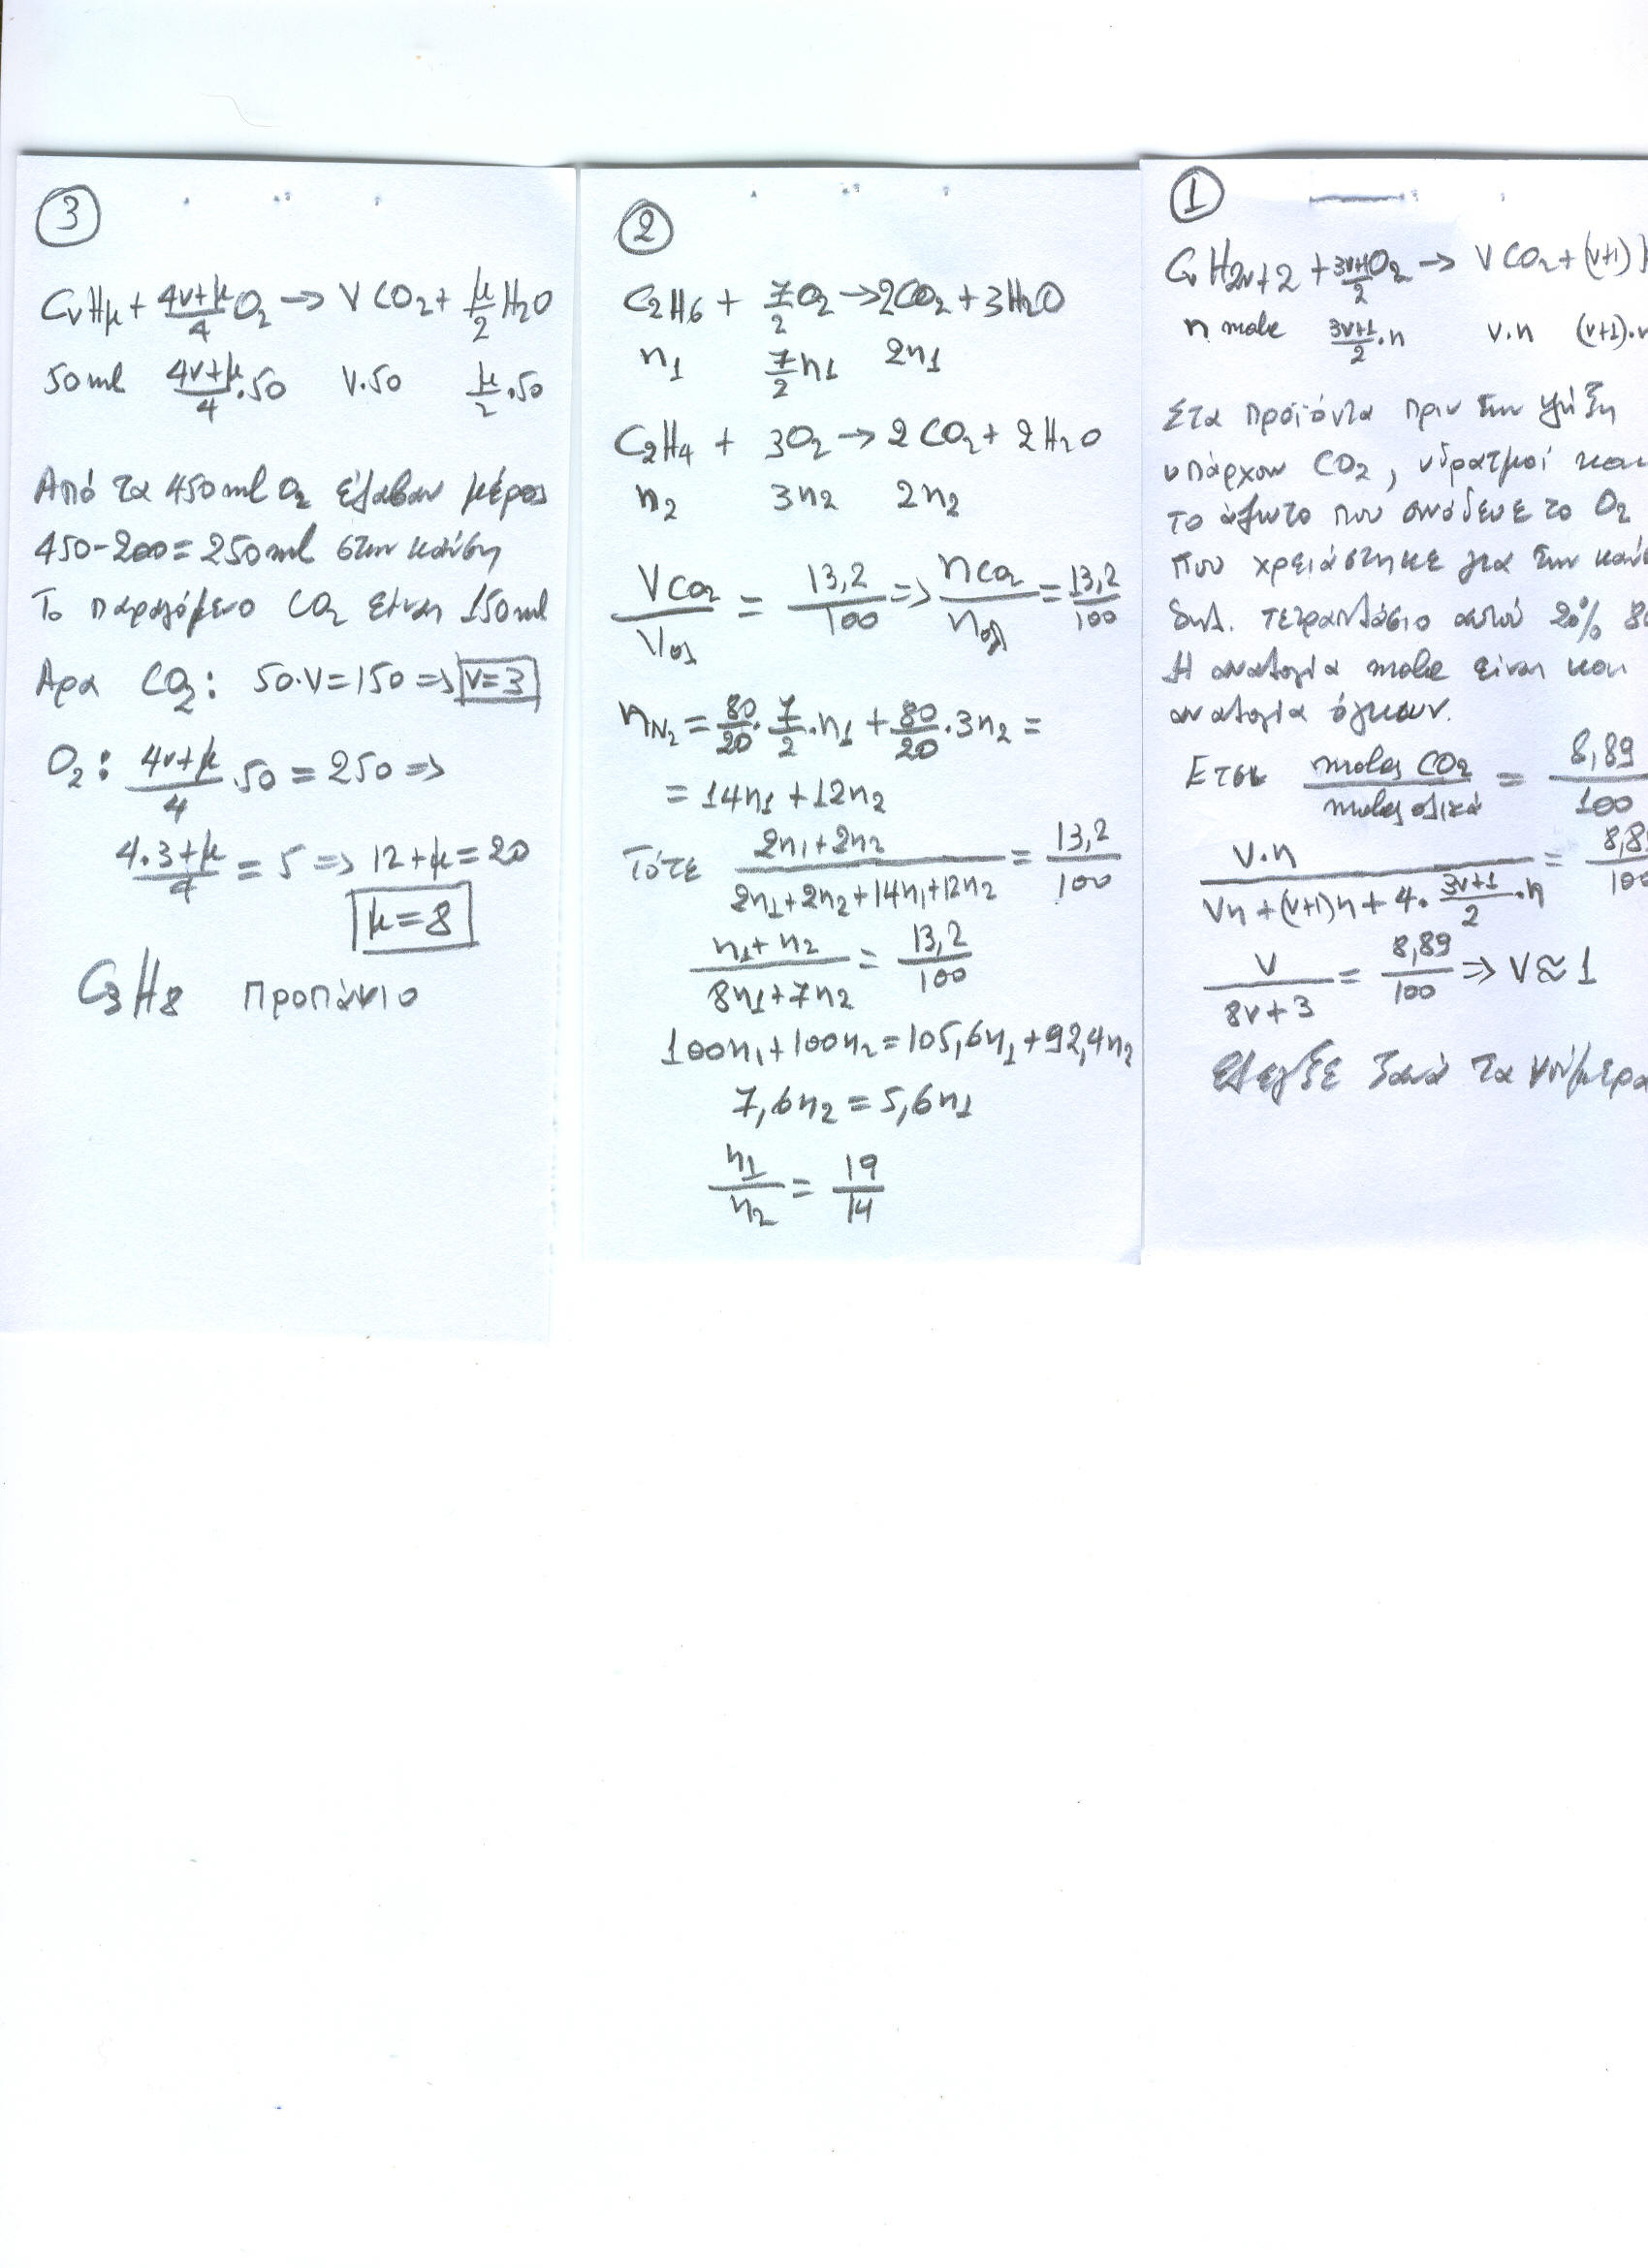 3
CνHμ + (4ν+μ)/4 O2 → νCO2 + μ/2 H2O
50ml (4ν+μ)/4·50 ν·50 μ/2·50
Από τα 450ml O2 έλαβαν μέρος
450-200=250ml στην καύση
Το παραγόμενο CO2 είναι 150ml
Αρα CO2: 50·ν=150 => ν=3
O2: (4ν+μ)/4 ·50 = 250 =>
(4·3+μ)/4 = 5 => 12+μ=20
μ=8
C3H8 προπάνιο
2
C2H6 + 7/2 O2 → 2CO2 + 3H2O
n1 7/2 n1 2n1
C2H4 + 3O2 → 2CO2 + 2H2O
n2 3n2 2n2
VCO2/Vολ = 13,2/100 => nCO2/nολ = 13,2/100
nN2 = 80/20·7/2·n1 + 80/20·3n2 =
= 14n1 + 12n2
Τότε (2n1+2n2)/(2n1+2n2+14n1+12n2) = 13,2/100
(n1+n2)/(8n1+7n2) = 13,2/100
100n1+100n2=105,6n1+92,4n2
7,6n2 = 5,6n1
n1/n2 = 19/14
1
CνH2ν+2 + (3ν+1)/2 O2 → νCO2 + (ν+1)
n mole (3ν+1)/2·n ν·n (ν+1)·
Στα προϊόντα πριν την ψύξη
υπάρχουν CO2, υδρατμοί και
το άζωτο που συνόδευε το O2
που χρειάστηκε για την
δηλ. τετραπλάσιο αυτού 20%
Η αναλογία mole είναι και
αναλογία όγκων.
Ετσι moles CO2/moles ολικά = 8,89/100
ν·n/(νn+(ν+1)n+4·(3ν+1)/2·n) =
ν/(8ν+3) = 8,89/100 => ν≈1
έλεγξε ξανά τα